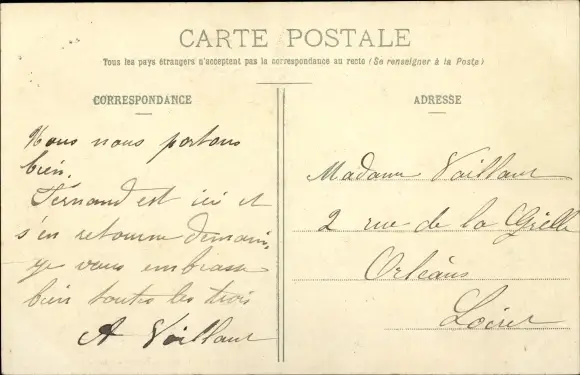 CARTE POSTALE
Tous les pays étrangers n'acceptent pas la correspondance au recto (Se renseigner à la Poste)
CORRESPONDANCE
Nous nous portons
bien.
Fernand est ici et
s'en retourne demain,
je vous embrasse
bien toutes les trois
A Vaillant
ADRESSE
Madame Vaillant
2 rue de la Grille
Orléans
Loiret